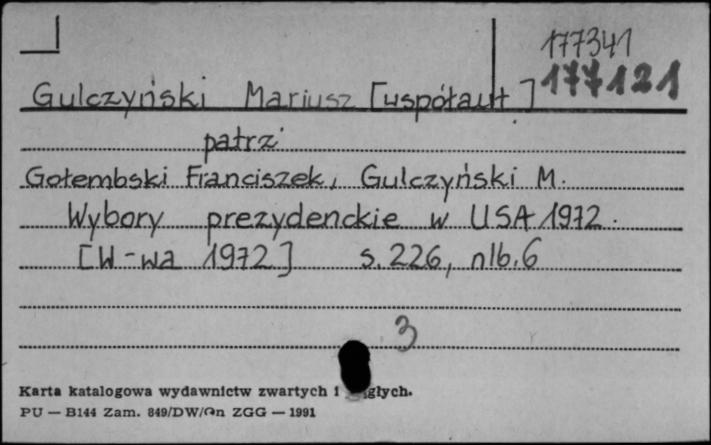 177341
177121
Gulczyński Mariusz [współaut]
patrz
Gołembski Franciszek, Gulczyński M.
Wybory prezydenckie w USA 1972.
[W-wa 1972] s.226, nlb.6
3
Karta katalogowa wydawnictw zwartych i
PU — B144 Zam. 849/DW/On ZGG — 1991